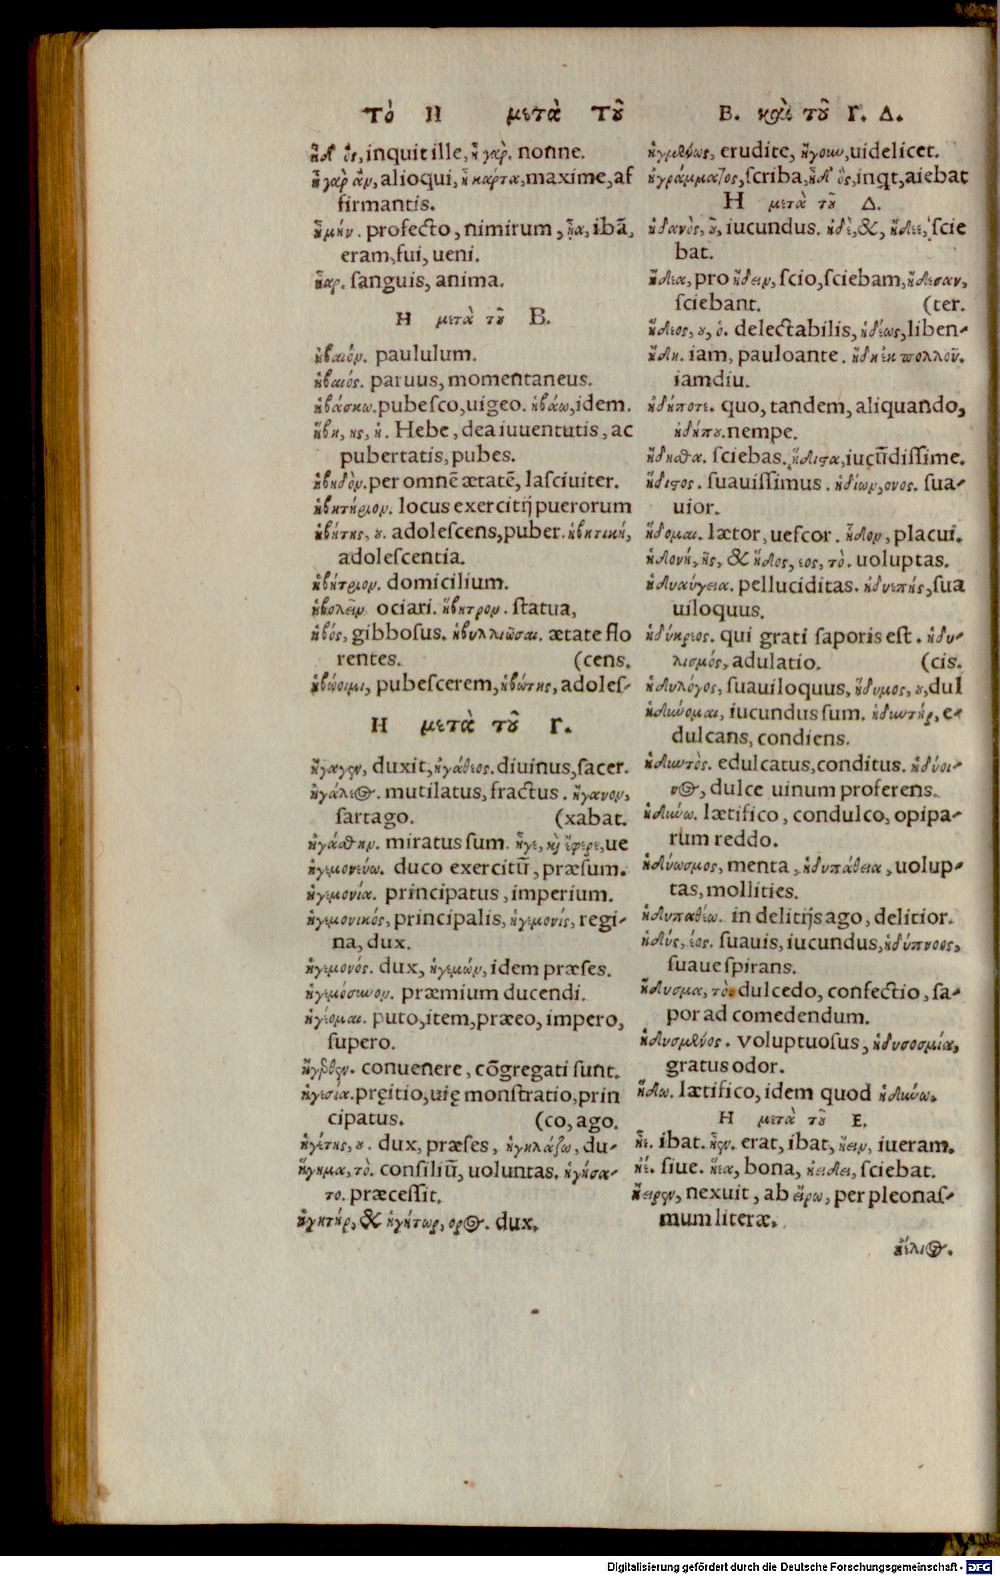 Τὸ Η μετὰ Τοῦ Β. καὶ τοῦ Γ. Δ.
ἦδ' ὅς, inquit ille, ἦ γαρ. nonne.
ἦ γαρ ἂν, alioqui, ἦ κάρτα, maxime, af
firmantis.
ἦ μήν. profecto, nimirum, ἦα, ibã,
eram, fui, ueni.
ἦαρ. sanguis, anima.
Η μετὰ τοῦ Β.
ἠβαιόν. paululum.
ἠβαιός. paruus, momentaneus.
ἡβάσκω. pubesco, uigeo. ἡβάω, idem.
ἥβη, ης, ἡ. Hebe, dea iuuentutis, ac
pubertatis, pubes.
ἡβηδὸν. per omnẽ ætatẽ, lasciuiter.
ἡβητήριον. locus exercitij puerorum
ἡβήτης, ου. adolescens, puber. ἡβητικὴ,
adolescentia.
ἡβήτριον. domicilium.
ἡβολεῖν ociari. ἥβητρον. statua,
ἡβός, gibbosus. ἡβυλλιῶσαι. ætate flo
rentes. (cens.
ἡβώοιμι, pubescerem, ἡβώτης, adoles-
Η μετὰ τοῦ Γ.
ἤγαγεν, duxit, ἠγάθεος. diuinus, sacer.
ἠγάλεος. mutilatus, fractus. ἤγανον,
sartago. (xabat.
ἠγάσθην. miratus sum. ἦγε, καὶ ἔφερε, ue
ἡγεμονεύω. duco exercitũ, præsum.
ἡγεμονία. principatus, imperium.
ἡγεμονικός, principalis, ἡγεμονίς, regi-
na, dux.
ἡγεμονός. dux, ἡγεμών, idem præses.
ἡγεμόσυνον. præmium ducendi.
ἡγέομαι. puto, item, præeo, impero,
supero.
ἤγερθεν. conuenere, cõgregati sunt.
ἡγεσία. pręitio, uię monstratio, prin
cipatus. (co, ago.
ἡγέτης, ου. dux, præses, ἡγηλάζω, du-
ἥγημα, τὸ. consiliũ, uoluntas. ἡγήσα-
το. præcessit.
ἡγητήρ, & ἡγήτωρ, ορος. dux.
ἠγμένως, erudite, ἤγουν, uidelicet.
ἠγράμματος, scriba, ἦδ' ὃς, inqt, aiebat
Η μετὰ τοῦ Δ.
ἡδανὸς, οῦ, iucundus. ἠδὲ, &, ἤδεε, scie
bat.
ἤδεια, pro ἤδειν, scio, sciebam, ἤδεισαν,
sciebant. (ter.
ἥδεος, ου, ὁ. delectabilis, ἡδέως, liben-
ἤδη. iam, pauloante. ἤδη ἐκ πολλοῦ.
iamdiu.
ἠδήποτε. quo, tandem, aliquando,
ἠδήπου. nempe.
ἤδησθα. sciebas. ἥδιστα, iucũdissime.
ἥδιστος. suauissimus. ἡδίων, ονος. sua-
uior.
ἥδομαι. lætor, uescor. ἧδον, placui.
ἡδονή, ῆς, & ἥδος, εος, τὸ. uoluptas.
ἡδυαύγεια. pelluciditas. ἡδυεπής, sua
uiloquus.
ἡδύκρεος. qui grati saporis est. ἡδυ-
λισμός, adulatio. (cis.
ἡδυλόγος, suauiloquus, ἥδυμος, ου, dul
ἡδύνομαι, iucundus sum. ἡδυντήρ, e-
dulcans, condiens.
ἡδυντὸς. edulcatus, conditus. ἡδύοι-
νος, dulce uinum proferens.
ἡδύνω. lætifico, condulco, opipa-
rum reddo.
ἡδύοσμος, menta, ἡδυπάθεια, uolup-
tas, mollities.
ἡδυπαθέω. in delitijs ago, delitior.
ἡδύς, έος. suauis, iucundus, ἡδύπνοος,
suaue spirans.
ἥδυσμα, τὸ. dulcedo, confectio, sa-
por ad comedendum.
ἡδυσμένος. voluptuosus, ἡδυσοσμία,
gratus odor.
ἥδω. lætifico, idem quod ἡδύνω.
Η μετὰ τοῦ Ε.
ἦε. ibat. ἦεν. erat, ibat, ἤειν, iueram.
ἠέ. siue. ἤεα, bona, ἠείδει, sciebat.
ἤειρεν, nexuit, ab εἴρω, per pleonas-
mum literæ.
ἠέλιος.
Digitalisierung gefördert durch die Deutsche Forschungsgemeinschaft - DFG